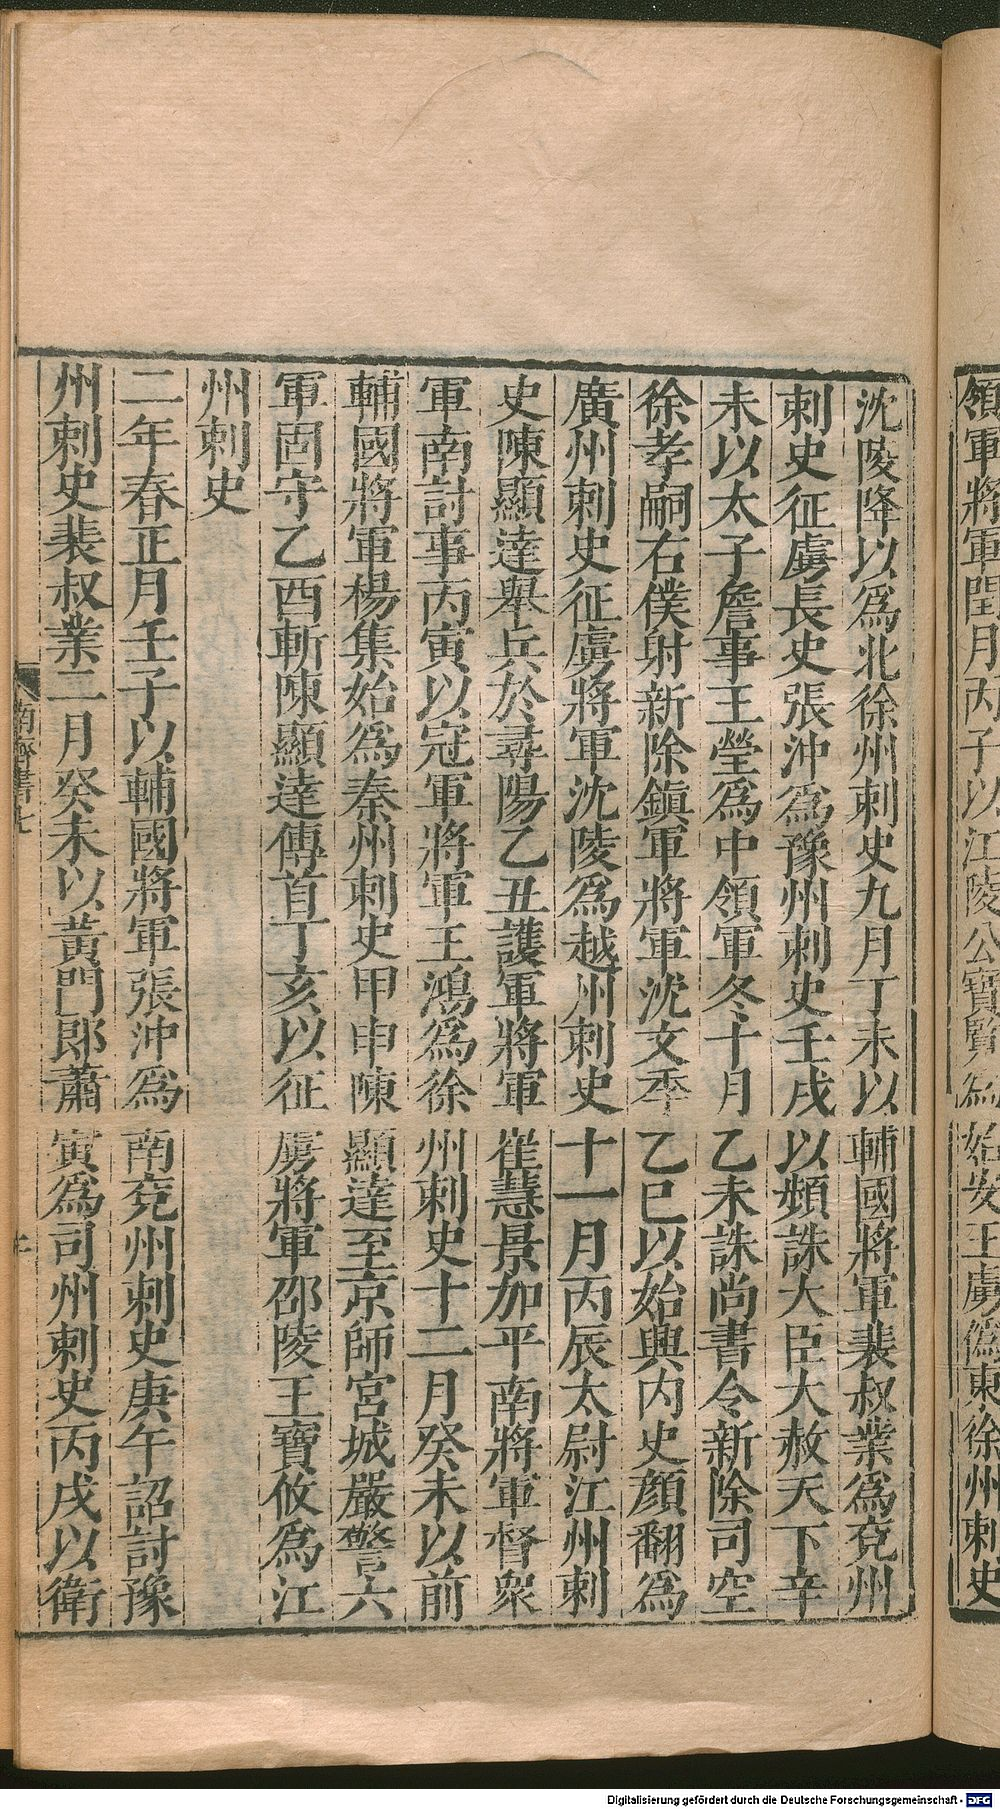 領軍將軍閏月丙子以江陵公寶覽爲始安王虜僞東徐州刺史
沈陵降以爲北徐州刺史九月丁未以輔國將軍裴叔業爲兗州
刺史征虜長史張沖爲豫州刺史壬戌以頻誅大臣大赦天下辛
未以太子詹事王瑩爲中領軍冬十月乙未誅尚書令新除司空
徐孝嗣右僕射新除鎭軍將軍沈文季乙巳以始興內史顏翻爲
廣州刺史征虜將軍沈陵爲越州刺史十一月丙辰太尉江州刺
史陳顯達舉兵於尋陽乙丑護軍將軍崔慧景加平南將軍督衆
軍南討事丙寅以冠軍將軍王鴻爲徐州刺史十二月癸未以前
輔國將軍楊集始爲秦州刺史甲申陳顯達至京師宮城嚴警六
軍固守乙酉斬陳顯達傳首丁亥以征虜將軍邵陵王寶攸爲江
州刺史
二年春正月壬子以輔國將軍張沖爲南兗州刺史庚午詔討豫
州刺史裴叔業二月癸未以黃門郎蕭寅爲司州刺史丙戌以衛
南齊書七
Digitalisierung gefördert durch die Deutsche Forschungsgemeinschaft - DFG